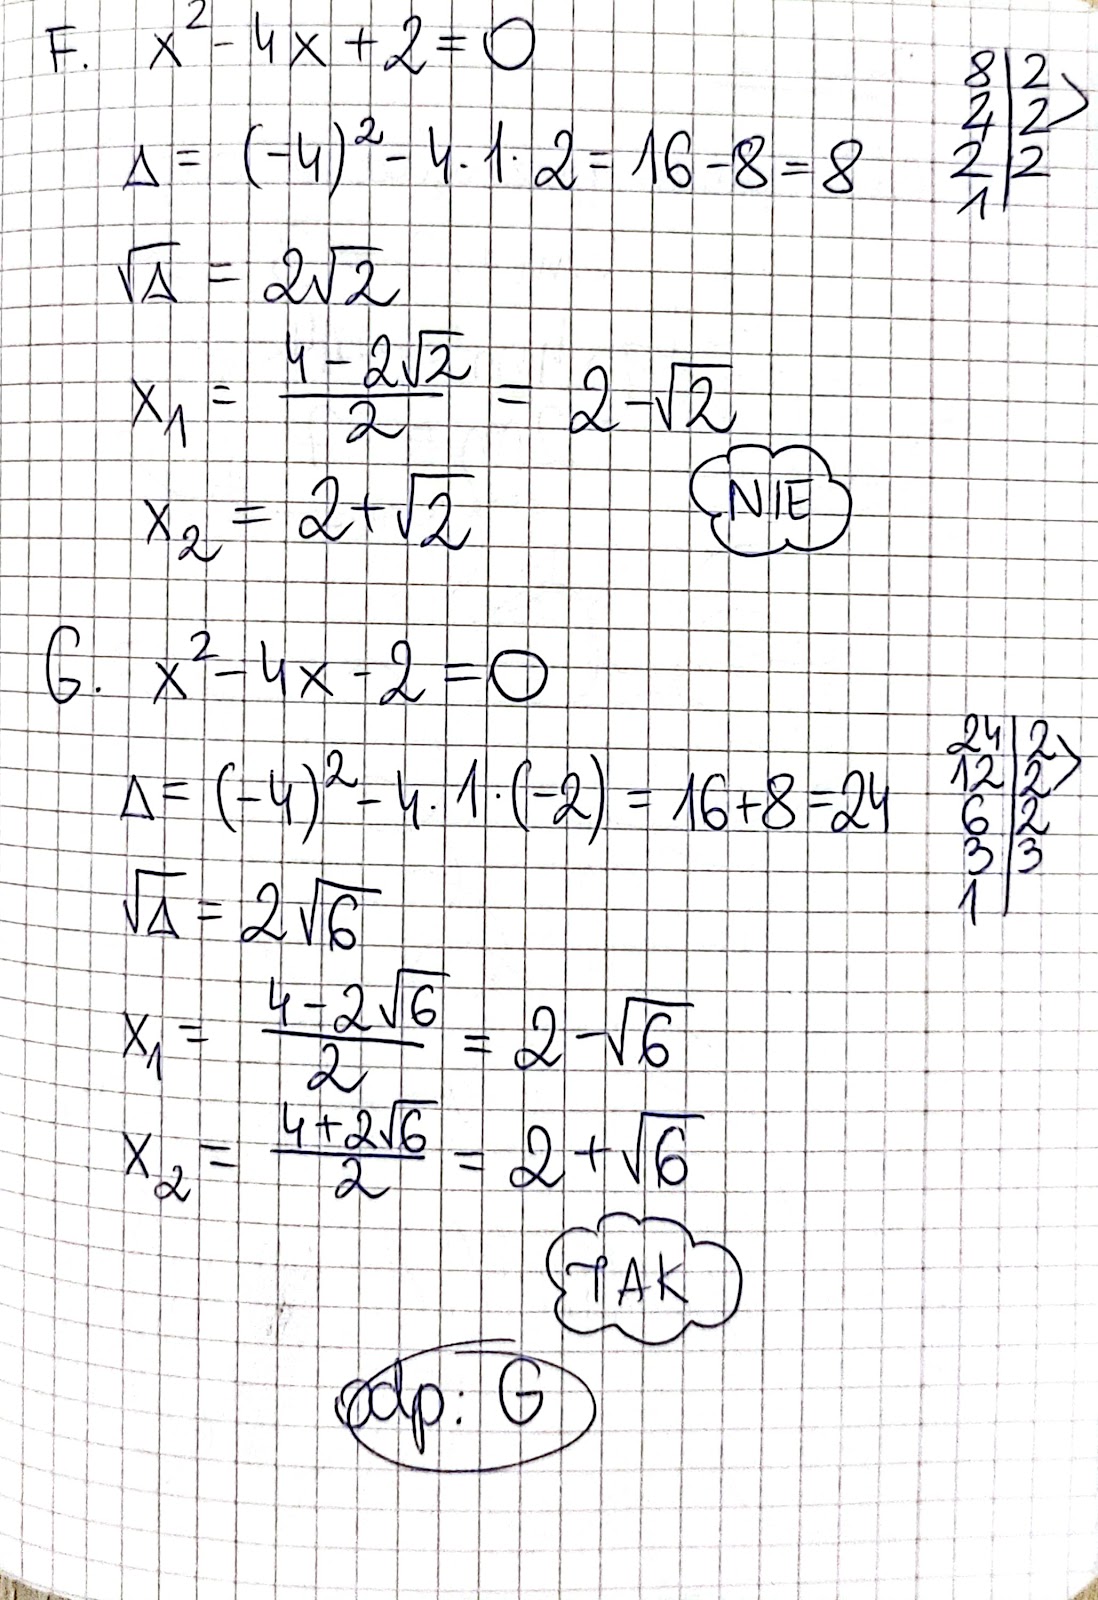 F. x² - 4x + 2 = 0
Δ = (-4)² - 4·1·2 = 16 - 8 = 8
8 | 2
4 | 2
2 | 2
1 |
√Δ = 2√2
x₁ = (4 - 2√2)/2 = 2 - √2
x₂ = 2 + √2
NIE
G. x² - 4x - 2 = 0
Δ = (-4)² - 4·1·(-2) = 16 + 8 = 24
24 | 2
12 | 2
6 | 2
3 | 3
1 |
√Δ = 2√6
x₁ = (4 - 2√6)/2 = 2 - √6
x₂ = (4 + 2√6)/2 = 2 + √6
TAK
odp: G